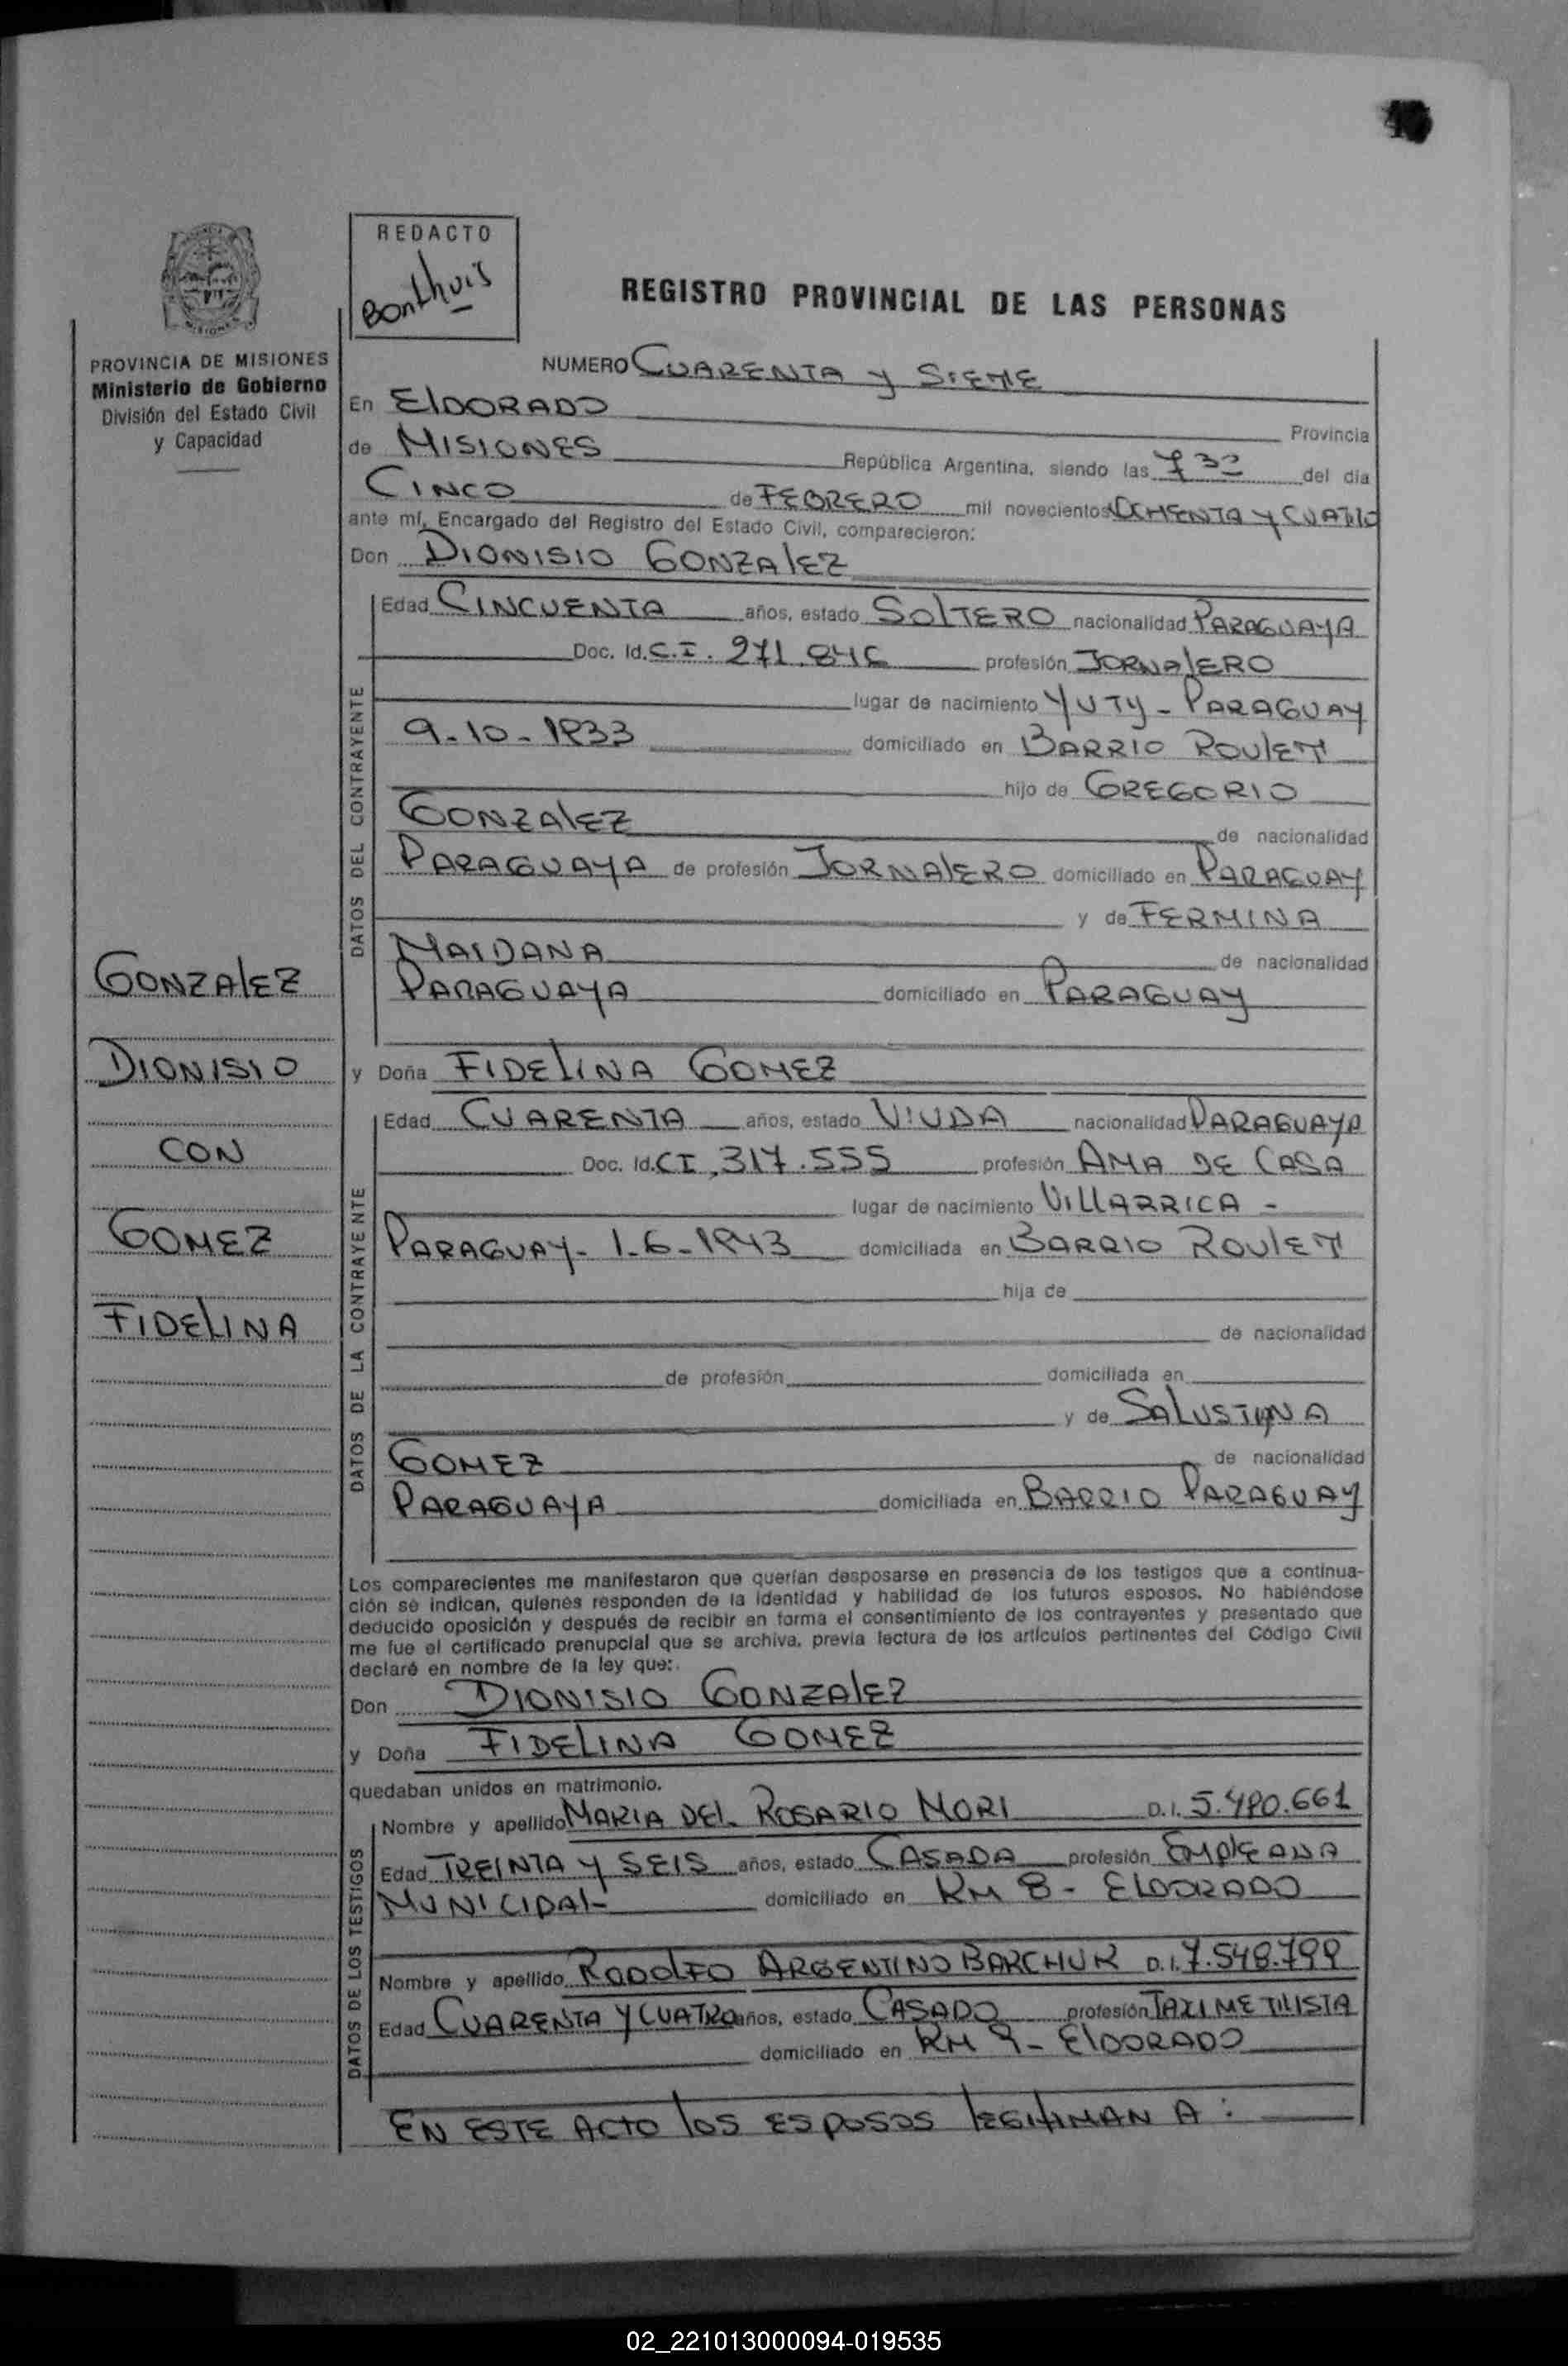 REDACTO
Bonthuis
REGISTRO PROVINCIAL DE LAS PERSONAS
PROVINCIA DE MISIONES
Ministerio de Gobierno
División del Estado Civil
y Capacidad
NUMERO CUARENTA y SIETE
En ElDORADO
Provincia
de MISIONES República Argentina, siendo las 7 30 del día
CINCO de FEBRERO mil novecientos OCHENTA y CUATRO
ante mí, Encargado del Registro del Estado Civil, comparecieron:
Don DIONISIO GONZAlEZ
DATOS DEL CONTRAYENTE
Edad CINCUENTA años, estado SOlTERO nacionalidad PARAGUAYA
Doc. Id. C.I. profesión JORNAlERO
lugar de nacimiento YUTY - PARAGUAY
9-10-1933 domiciliado en BARRIO ROUlET
hijo de GREGORIO
GONZAlEZ de nacionalidad
PARAGUAYA de profesión JORNAlERO domiciliado en PARAGUAY
y de FERMINA
MAIDANA de nacionalidad
PARAGUAYA domiciliado en PARAGUAY
GONZAlEZ
DIONISIO
CON
GOMEZ
FIDElINA
y Doña FIDElINA GOMEZ
DATOS DE LA CONTRAYENTE
Edad CUARENTA años, estado VIUDA nacionalidad PARAGUAYA
Doc. Id. CI, 317.555 profesión AMA DE CASA
lugar de nacimiento VIllARRICA -
PARAGUAY - 1-6-1943 domiciliada en BARRIO ROUlET
hija de
de nacionalidad
de profesión domiciliada en
y de SALUSTIANA
GOMEZ de nacionalidad
PARAGUAYA domiciliada en BARRIO PARAGUAY
Los comparecientes me manifestaron que querían desposarse en presencia de los testigos que a continua-
ción se indican, quienes responden de la identidad y habilidad de los futuros esposos. No habiéndose
deducido oposición y después de recibir en forma el consentimiento de los contrayentes y presentado que
me fue el certificado prenupcial que se archiva, previa lectura de los artículos pertinentes del Código Civil
declaré en nombre de la ley que:
Don DIONISIO GONZAlEZ
y Doña FIDELINA GOMEZ
quedaban unidos en matrimonio.
DATOS DE LOS TESTIGOS
Nombre y apellido MARIA DEL ROSARIO MORI D.I. 5.490.661
Edad TREINTA Y SEIS años, estado CASADA profesión EMPlEADA
MUNICIPAL domiciliado en KM 8 - ELDORADO
Nombre y apellido RODOlFO ARGENTINO BARCHUK D.I. 7.548.799
Edad CUARENTA Y CUATRO años, estado CASADO profesión TAXIMETRISTA
domiciliado en KM 9 - ElDORADO
EN ESTE ACTO lOS ESPOSOS lEGITIMAN A :
02_221013000094-019535